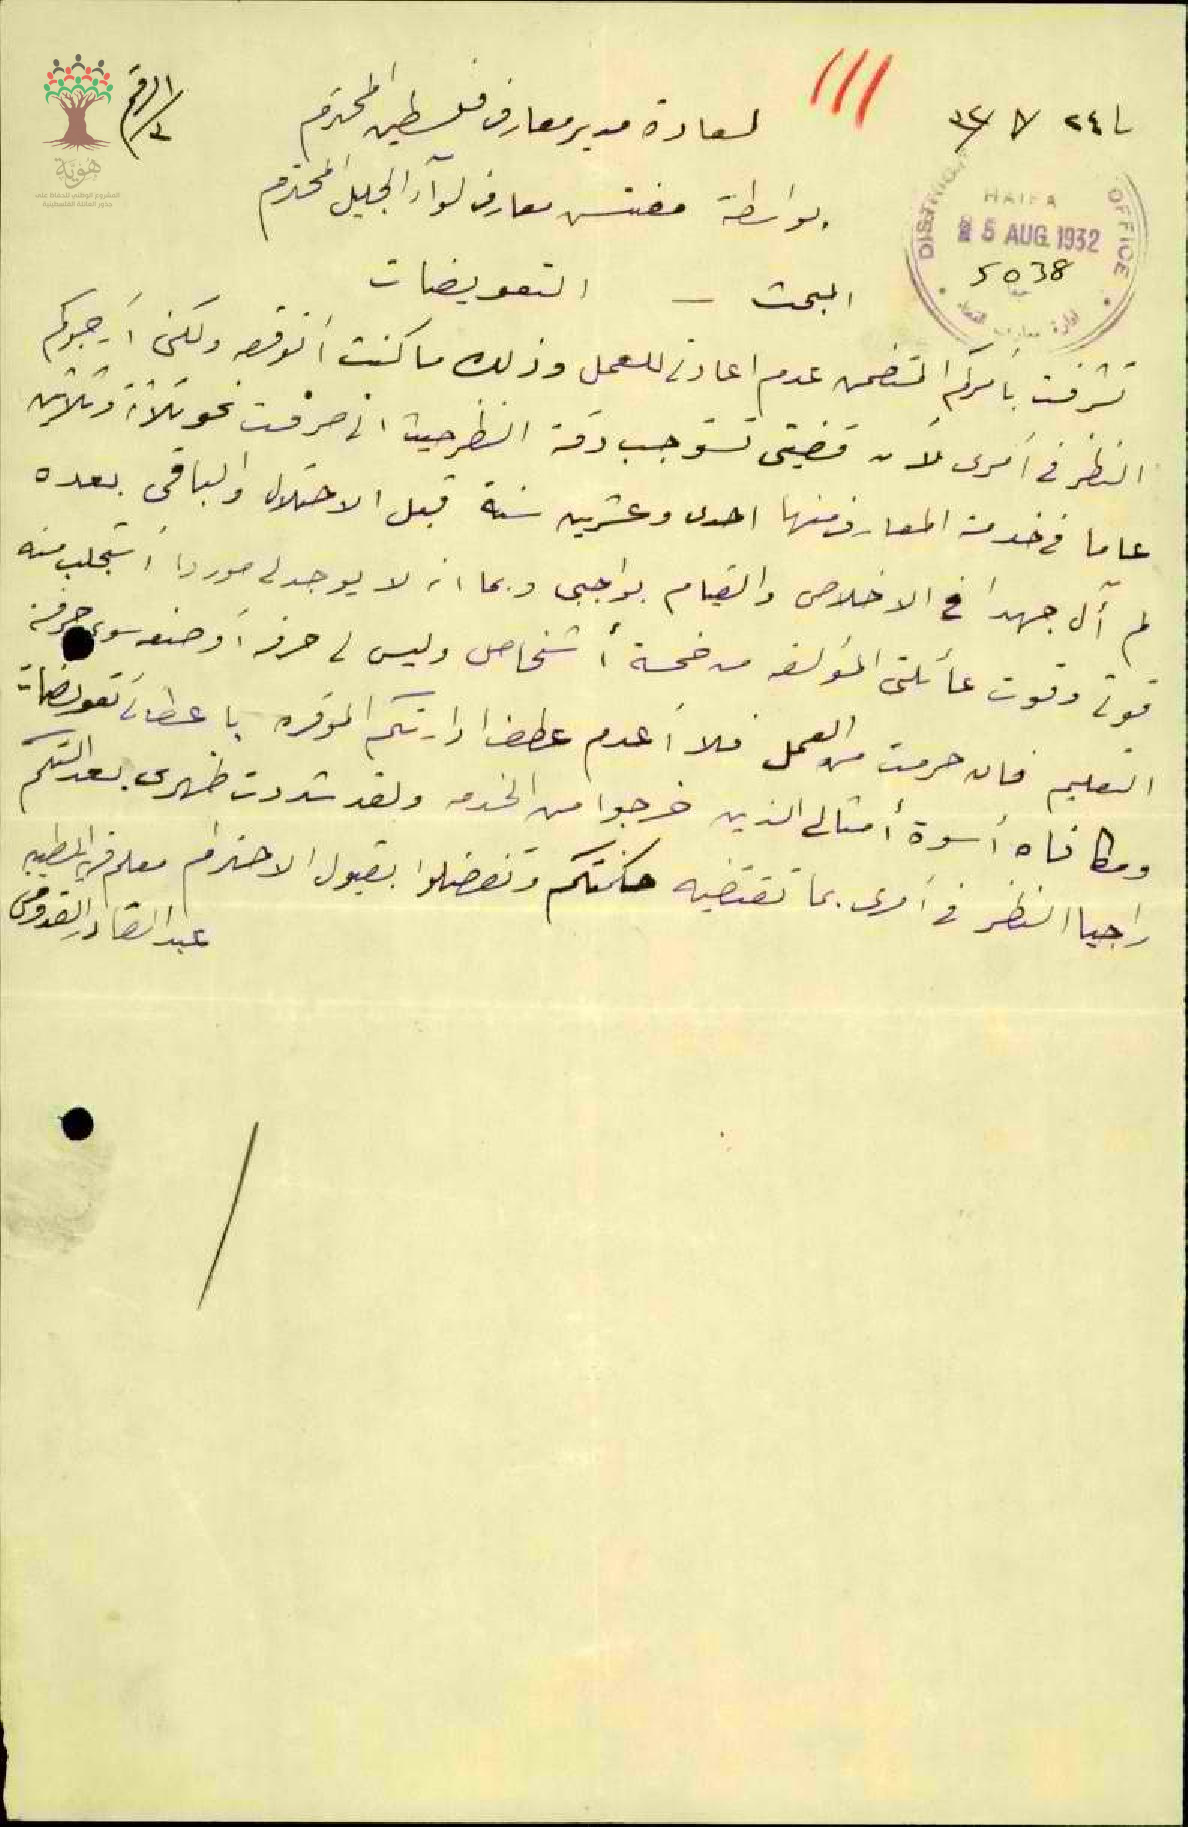 الرقم
٣
٢٤ / ٨ / ٣٢
لسعادة مدير معارف فلسطين المحترم
بواسطة مفتش معارف لوآء الجليل المحترم
DISTRICT OFFICE
HAIFA
25 AUG. 1932
5038
هوية
المشروع الوطني للحفاظ على
جذور العائلة الفلسطينية
المبحث – التعويضات
تشرفت بأمركم المتضمن عدم اعادتي للعمل وذلك ما كنت أتوقعه ولكني أرجوكم
النظر في أمري لأن قضيتي تستوجب دقة النظر حيث اني صرفت نحو ثلاثة وثلاثين
عاما في خدمة المعارف منها احدى وعشرين سنة قبل الاحتلال والباقي بعده
لم آل جهدا في الاخلاص والقيام بواجبي وبما انه لا يوجد لي موردا أستجلب منه
قوتي وقوت عائلتي المؤلفه من خمسة أشخاص وليس لي حرفه أو صنعه سوى حرفة
التعليم فان حرمت من العمل فلا أعدم عطف ادارتكم الموقره باعطائي تعويضات
ومكافاه أسوة أمثالي الذين خرجوا من الخدمه ولقد شددت ظهري بعدالتكم
راجيا النظر في أمري بما تقتضيه حكمتكم وتفضلوا بقبول الاحترام معلم في
عبد القادر القدومي